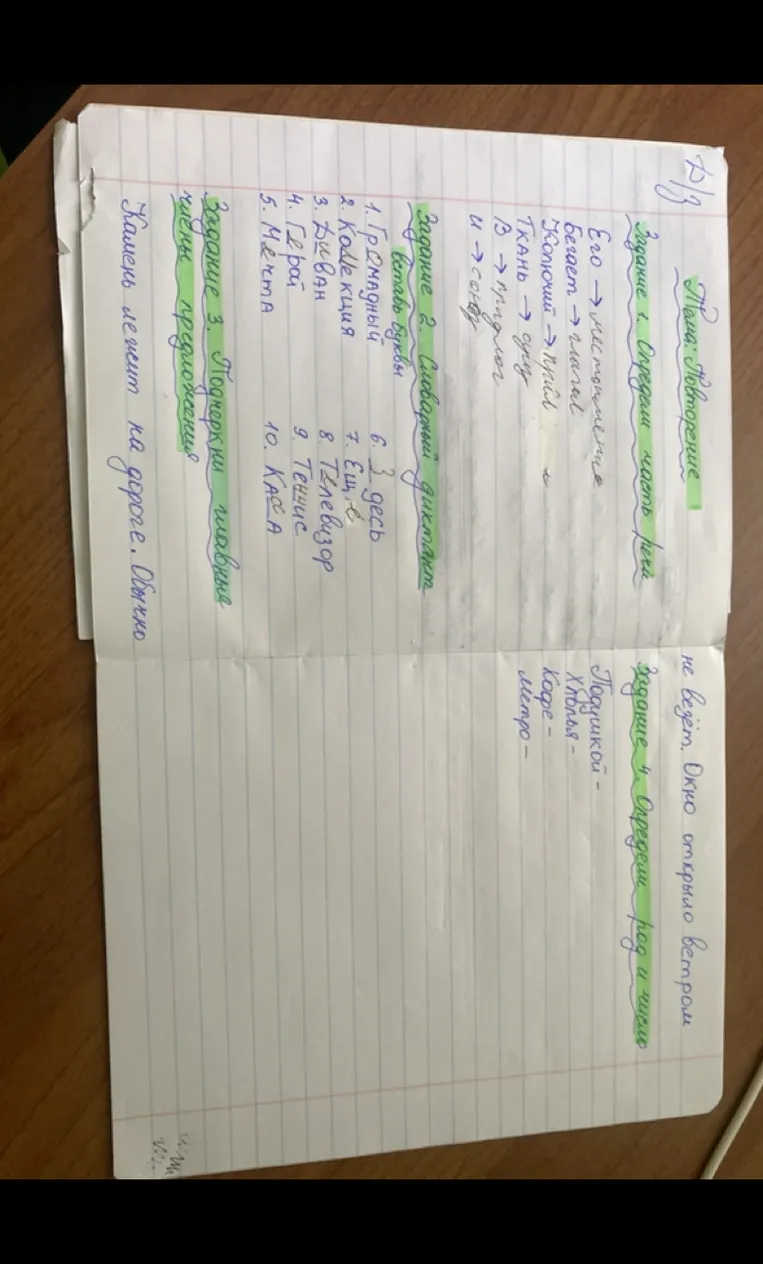 Д/З
Тема: Повторение
Задание 1. Определи часть речи
Его → местоимение
Бегает → глагол
Колючий → прил
Ткань → сущ
В → предлог
И → союз
Задание 2. Словарный диктант
Вставь буквы
1. Громадный
2. Коллекция
3. Диван
4. Герой
5. Мечта
6. Здесь
7. Ещё
8. Телевизор
9. Теннис
10. Касса
Задание 3. Подчеркни главные
члены предложения
Камень лежит на дороге. Обычно
не везёт. Окно открыло ветром
Задание 4. Определи род и число
Подушкой -
Хлопья -
Кофе -
Метро -